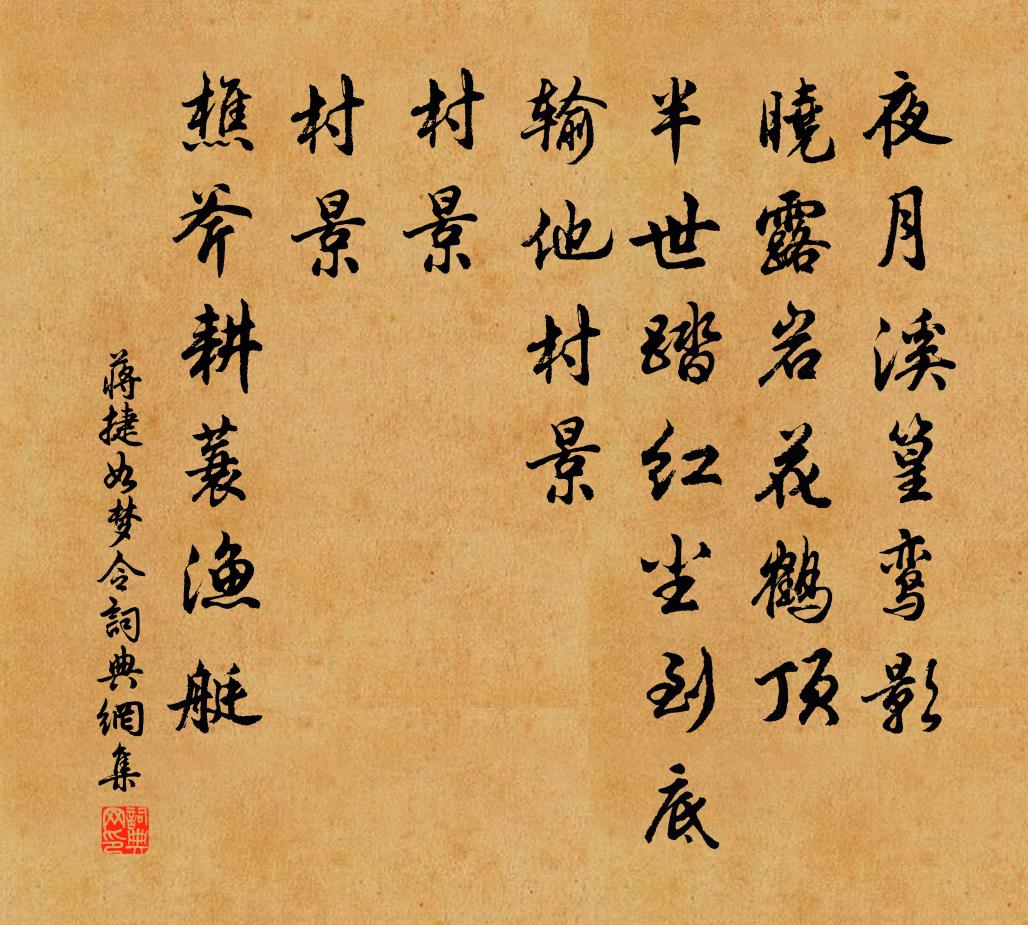 夜月溪篁鸾影
晓露岩花鹤顶
半世踏红尘到底
输他村景
村景
村景
樵斧耕蓑渔艇
蒋捷如梦令詞典網集
詞典
网印